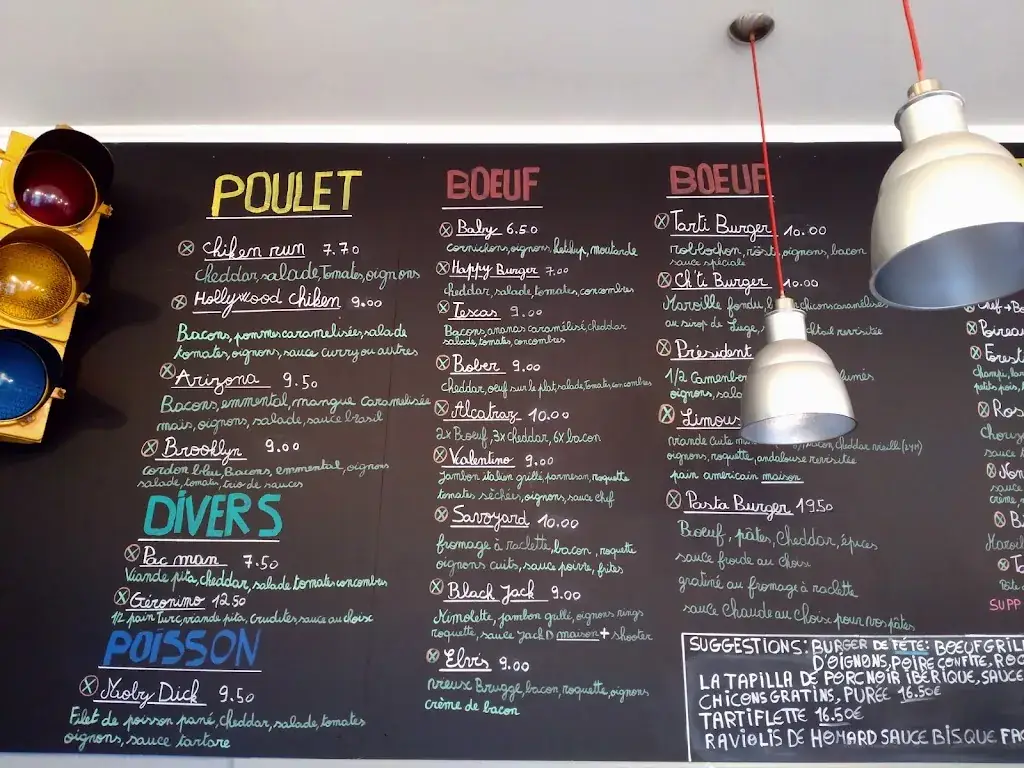 POULET
Chiken run 7.70
Cheddar, salade, Tomates, oignons
Hollywood chiken 9.00
Bacons, pommes caramelisées, salade
tomates, oignons, sauce curry ou autres
Arizona 9.50
Bacons, emmental, mangue caramelisée
mais, oignons, salade, sauce brasil
Brooklyn 9.00
cordon bleu, Bacons, emmental, oignons
salade, tomates, trio de sauces
DIVERS
Pac man 7.50
Viande pita, cheddar, salade tomate concombres
Géronimo 12.50
1/2 pain Turc, viande pita, crudités, sauce au choix
POISSON
Moby Dick 9.50
Filet de poisson pané, cheddar, salade, tomates
oignons, sauce tartare
BOEUF
Baby 6.50
cornichons, oignons, ketchup, moutarde
Happy Burger 7.00
cheddar, salade, tomates, concombres
Texas 9.00
Bacons, ananas caramélisé, cheddar
salade, tomates, concombres
Bober 9.00
Cheddar, oeuf sur le plat, salade, tomate, concombres
Alcatraz 10.00
2x Boeuf, 3x cheddar, 6x bacon
Valentino 9.00
Jambon italien grillé, parmesan, roquette
tomates séchées, oignons, sauce chef
Savoyard 10.00
fromage à raclette, bacon, roquette
oignons cuits, sauce poivre, frites
Black Jack 9.00
Mimolette, jambon grillé, oignons rings
roquette, sauce Jack D maison + shooter
Elvis 9.00
vieux Brugge, bacon, roquette, oignons
crème de bacon
BOEUF
Tarti Burger 10.00
roblochon, rösti, oignons, bacon
sauce spéciale
Ch'ti Burger 10.00
Maroille fondu, chicons caramélisés
au sirop de Liège, cktail revisitée
Président
1/2 Camenber fumés
oignons, sala
Limous
viande cuite bacon, cheddar vieilli
oignons, roquette, andalouse revisitée
pain americain maison
Pasta Burger 19.50
Boeuf, pâtes, Cheddar, épices
sauce froide au choix
gratiné au fromage à raclette
sauce Chaude au Choix pour vos pâtes
Poireau
Foresti
champi, lar
petits pois,
Ros
SUPP
SUGGESTIONS: BURGER DE FÊTE: BOEUF GRIL
D'OIGNONS, POIRE CONFITE, ROQ
LA TAPILLA DE PORC NOIR IBERIQUE, SAUCE
CHICONS GRATINS, PURÉE 16.50€
TARTIFLETTE 16.50€
RAVIOLIS DE HOMARD SAUCE BISQUE FAÇ